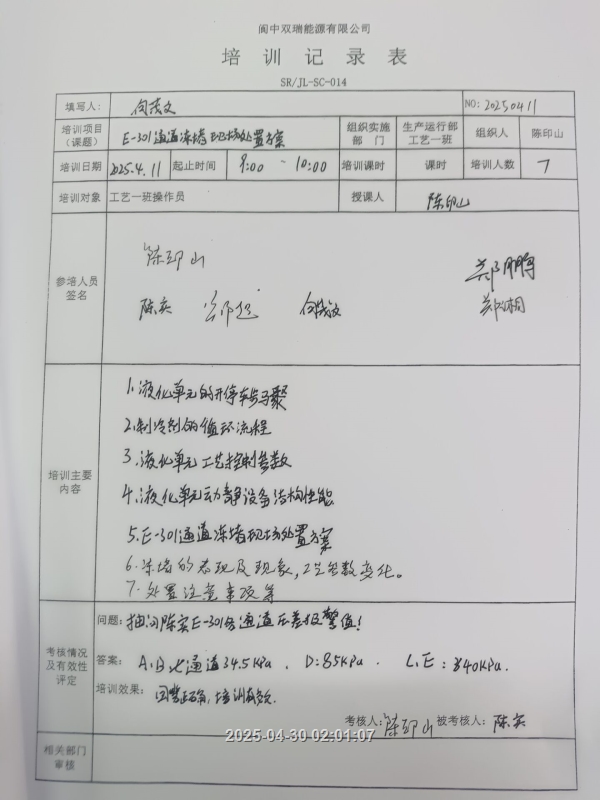 阆中双瑞能源有限公司
培训记录表
SR/JL-SC-014
填写人： NO: 20250411
培训项目（课题） E-301通道冻堵现场处置方案 组织实施部门 生产运行部工艺一班 组织人 陈印山
培训日期 2025.4.11 起止时间 9:00 ~ 10:00 培训课时 课时 培训人数 7
培训对象 工艺一班操作员 授课人 陈印山
参培人员签名
陈印山 郑鹏
陈实
培训主要内容
1.液化单元的开停车步骤
2.制冷剂的循环流程
3.液化单元工艺控制参数
4.液化单元动静设备结构性能
5.E-301通道冻堵现场处置方案
6.冻堵的表现及现象，工艺参数变化。
7.处置注意事项等
考核情况及有效性评定
问题：抽问陈实E-301各通道压差报警值！
答案： A.B 通道34.5KPa . D:85KPa . 340KPa.
培训效果： 回答正确，培训有效.
考核人：陈印山 被考核人：陈实
相关部门审核
2025-04-30 02:01:07